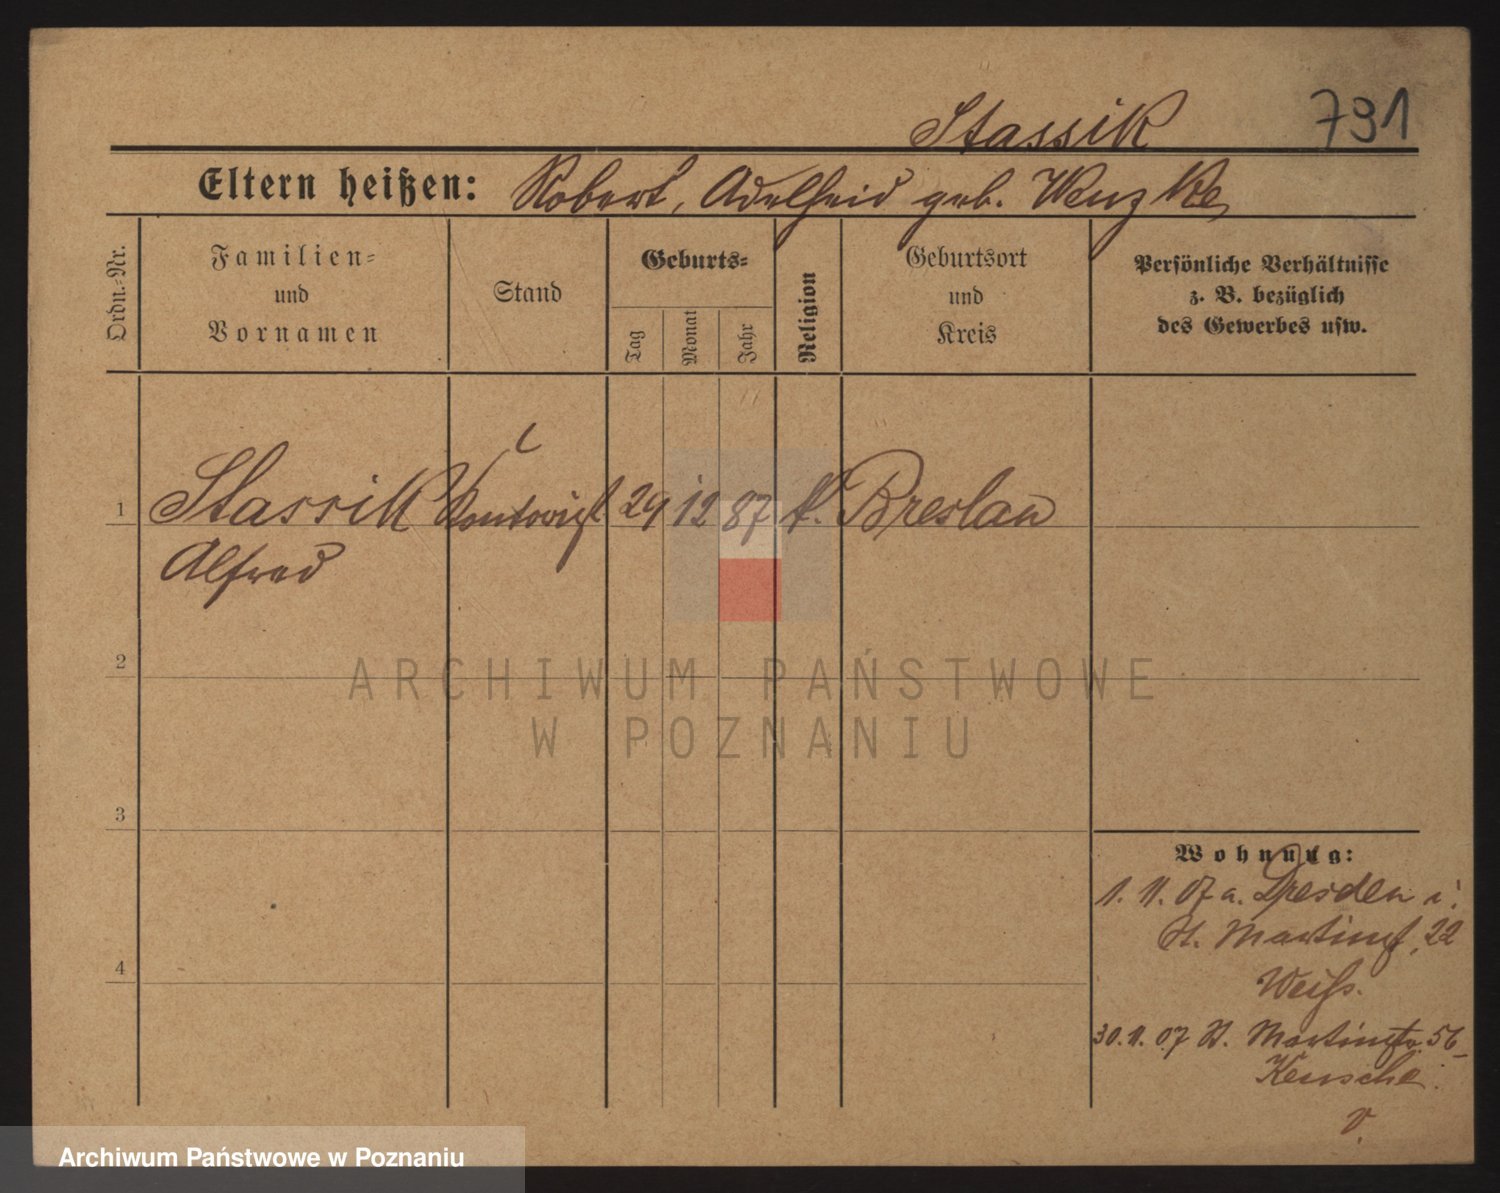 Stassik
791
Eltern heißen: Robert, Adelheid geb. Wenzke
Ordn.-Nr.
Familien-
und
Vornamen
Stand
Geburts-
Tag
Monat
Jahr
Religion
Geburtsort
und
Kreis
Persönliche Verhältnisse
z. B. bezüglich
des Gewerbes usw.
1 Stassik 29 12 87 k. Breslau
Alfred
2
3
4
Wohnung:
1. 11. 07 a. Dresden i.
St. Martinst. 22
Weiss.
30. 11. 07 St. Martinstr. 56
ARCHIWUM PAŃSTWOWE
W POZNANIU
Archiwum Państwowe w Poznaniu